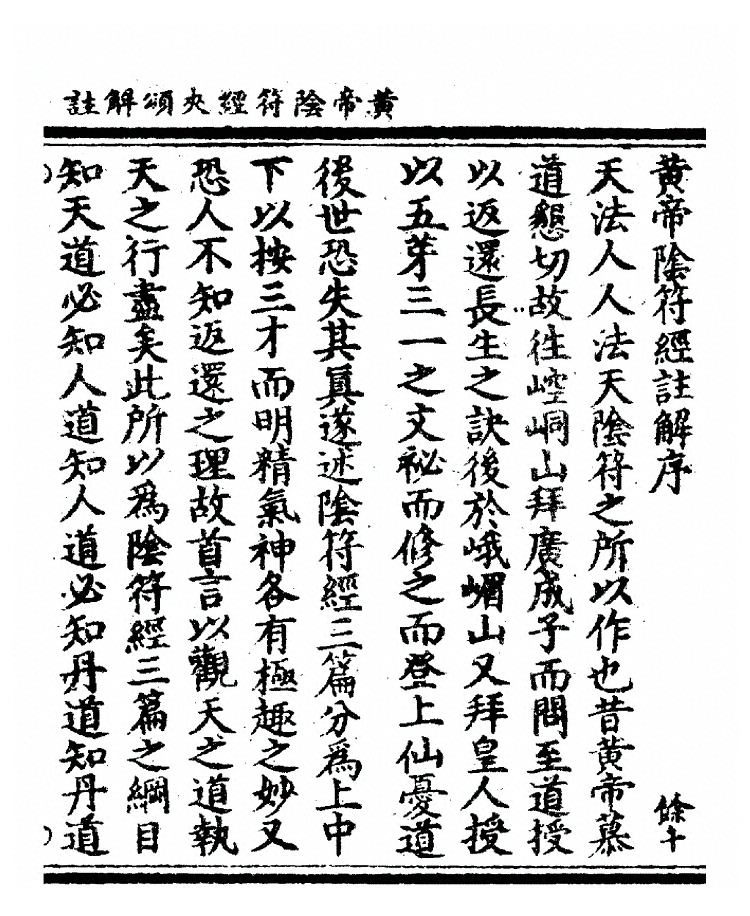 黃帝陰符經夾頌解註
黃帝陰符經註解序 餘十
天法人人法天陰符之所以作也昔黃帝慕
道懇切故徃崆峒山拜廣成子而問至道授
以返還長生之訣後於峨嵋山又拜皇人授
以五芽三一之文祕而修之而登上仙憂道
後世恐失其真遂述陰符經三篇分爲上中
下以按三才而明精氣神各有極趣之妙又
恐人不知返還之理故首言以觀天之道執
天之行盡矣此所以爲陰符經三篇之綱目
知天道必知人道知人道必知丹道知丹道